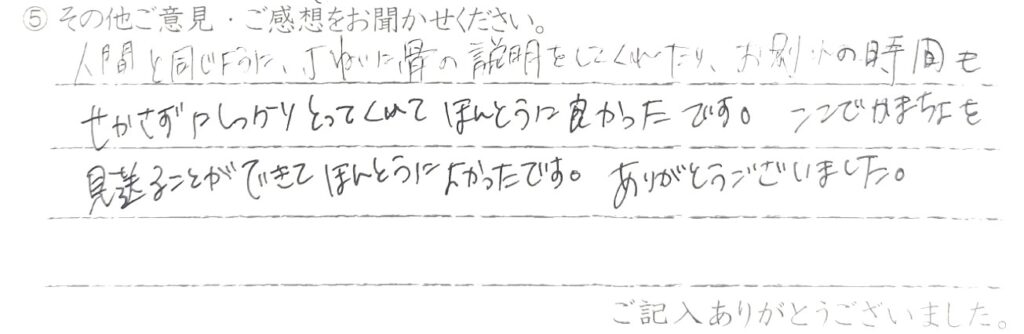 ⑤ その他ご意見・ご感想をお聞かせください。
人間と同じように、丁ねいに骨の説明をしてくれたり、お別れの時間も
せかさずにしっかりとってくれて ほんとうに良かったです。 ここでかまちょを
見送ることができて ほんとうによかったです。 ありがとうございました。
ご記入ありがとうございました。